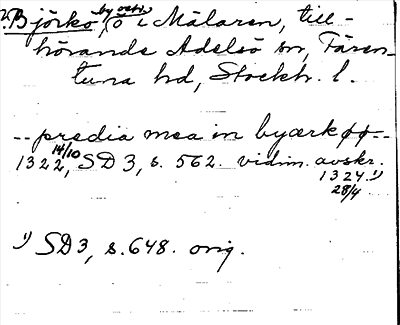 2. Björkö, by o. ö i Mälaren, till-
hörande Adelsö sn, Fären-
tuna hd, Stockh. l.
-- predia mea in byærkøø --
1322 14/10, SD 3, s. 562. vidim. avskr.
1324. 1)
28/4
1) SD 3, s. 648. orig.